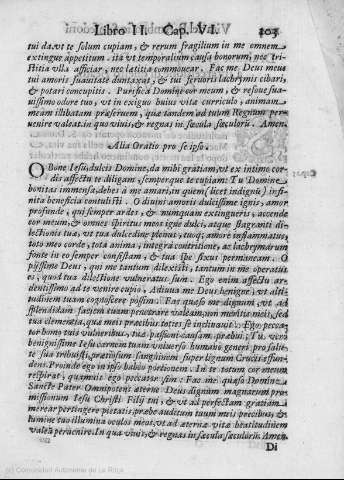 Libro II. Cap. VI. 403
tui da, vt te solum cupiam, & rerum fragilium in me omnem
extingue appetitum. ita vt temporalium causa bonorum, nec tri-
stitia vlla afficiar, nec lætitia commouear. Fac me Deus meus
tui amoris suauitate duntaxat, & tui feruoris lachrymis cibari,
& potari concupiti. Purifica Domine cor meum, & resoue sua-
uissimo odore tuo, vt in exiguo huius vitæ curriculo, animam
meam illibatam præseruem, quæ tandem ad tuum Regnum per-
uenire valeat. in quo viuis, & regnas in sæcula sæculorū. Amen.
Alia Oratio pro se ipso.
O Bone Iesu, dulcis Domine, da mihi gratiam, vt ex intimo cor-
dis affectu te diligam, semperque te cupiam: Tu Domine
bonitas immensa, debes à me amari, in quem (licet indignū) infi-
nita beneficia contulisti. O diuini amoris dulcissime ignis, amor
profunde, qui semper ardes, & nunquam extingueris, accende
cor meum, & omnes spiritus meos igne dulci, atque flagranti di-
lectionis tuæ, vt tua dulcedine plenus, tuoq; amore inflammatus,
toto meo corde, tota anima, integra contritione, ac lachrymarum
fonte in eo semper consistam, & tua spe fixus permaneam. O
pijssime Deus, qui me tantum dilexisti, tantum in me operatus
es, quod tua dilectione vulneratus sum. Ego enim affectu ar-
dentissimo ad te venire cupio, Adiuua me Deus benigne, vt alti-
tudinem tuam cognoscere possim. Fac quæso me dignum, vt ad
splendidam faciem tuam penetrare valeam, non meritis meis, sed
tua clementia, qua meis præcibus totres se inclinauit. Ego pecca-
tor homo tuis vulneribus, tuæ passioni causam præbui; Tu verò
benignissime Iesu carnem tuam vniuerso humano generi pro salu-
te sua tribuisti, prætiosum sanguinem super lignum Crucis effun-
dens. Proinde ego in ipso habeo portionem. In te totum cor meum
respirat, quamuis ego peccator sim. Fac me quæso Domine
Sancte Pater Omnipotens æterne Deus dignum magnarum pro-
missionum Iesu Christi Filij tui, & vt ad perfectam gratiam
merear pertingere pietatis, præbe auditum tuum meis precibus, &
lumine tuo illumina oculos meos, vt ad æternæ vitæ beatitudinem
valeā peruenire. In qua viuis, & regnas in sæcula sæculorū. Amen.
Di
(c) Comunidad Autónoma de La Rioja